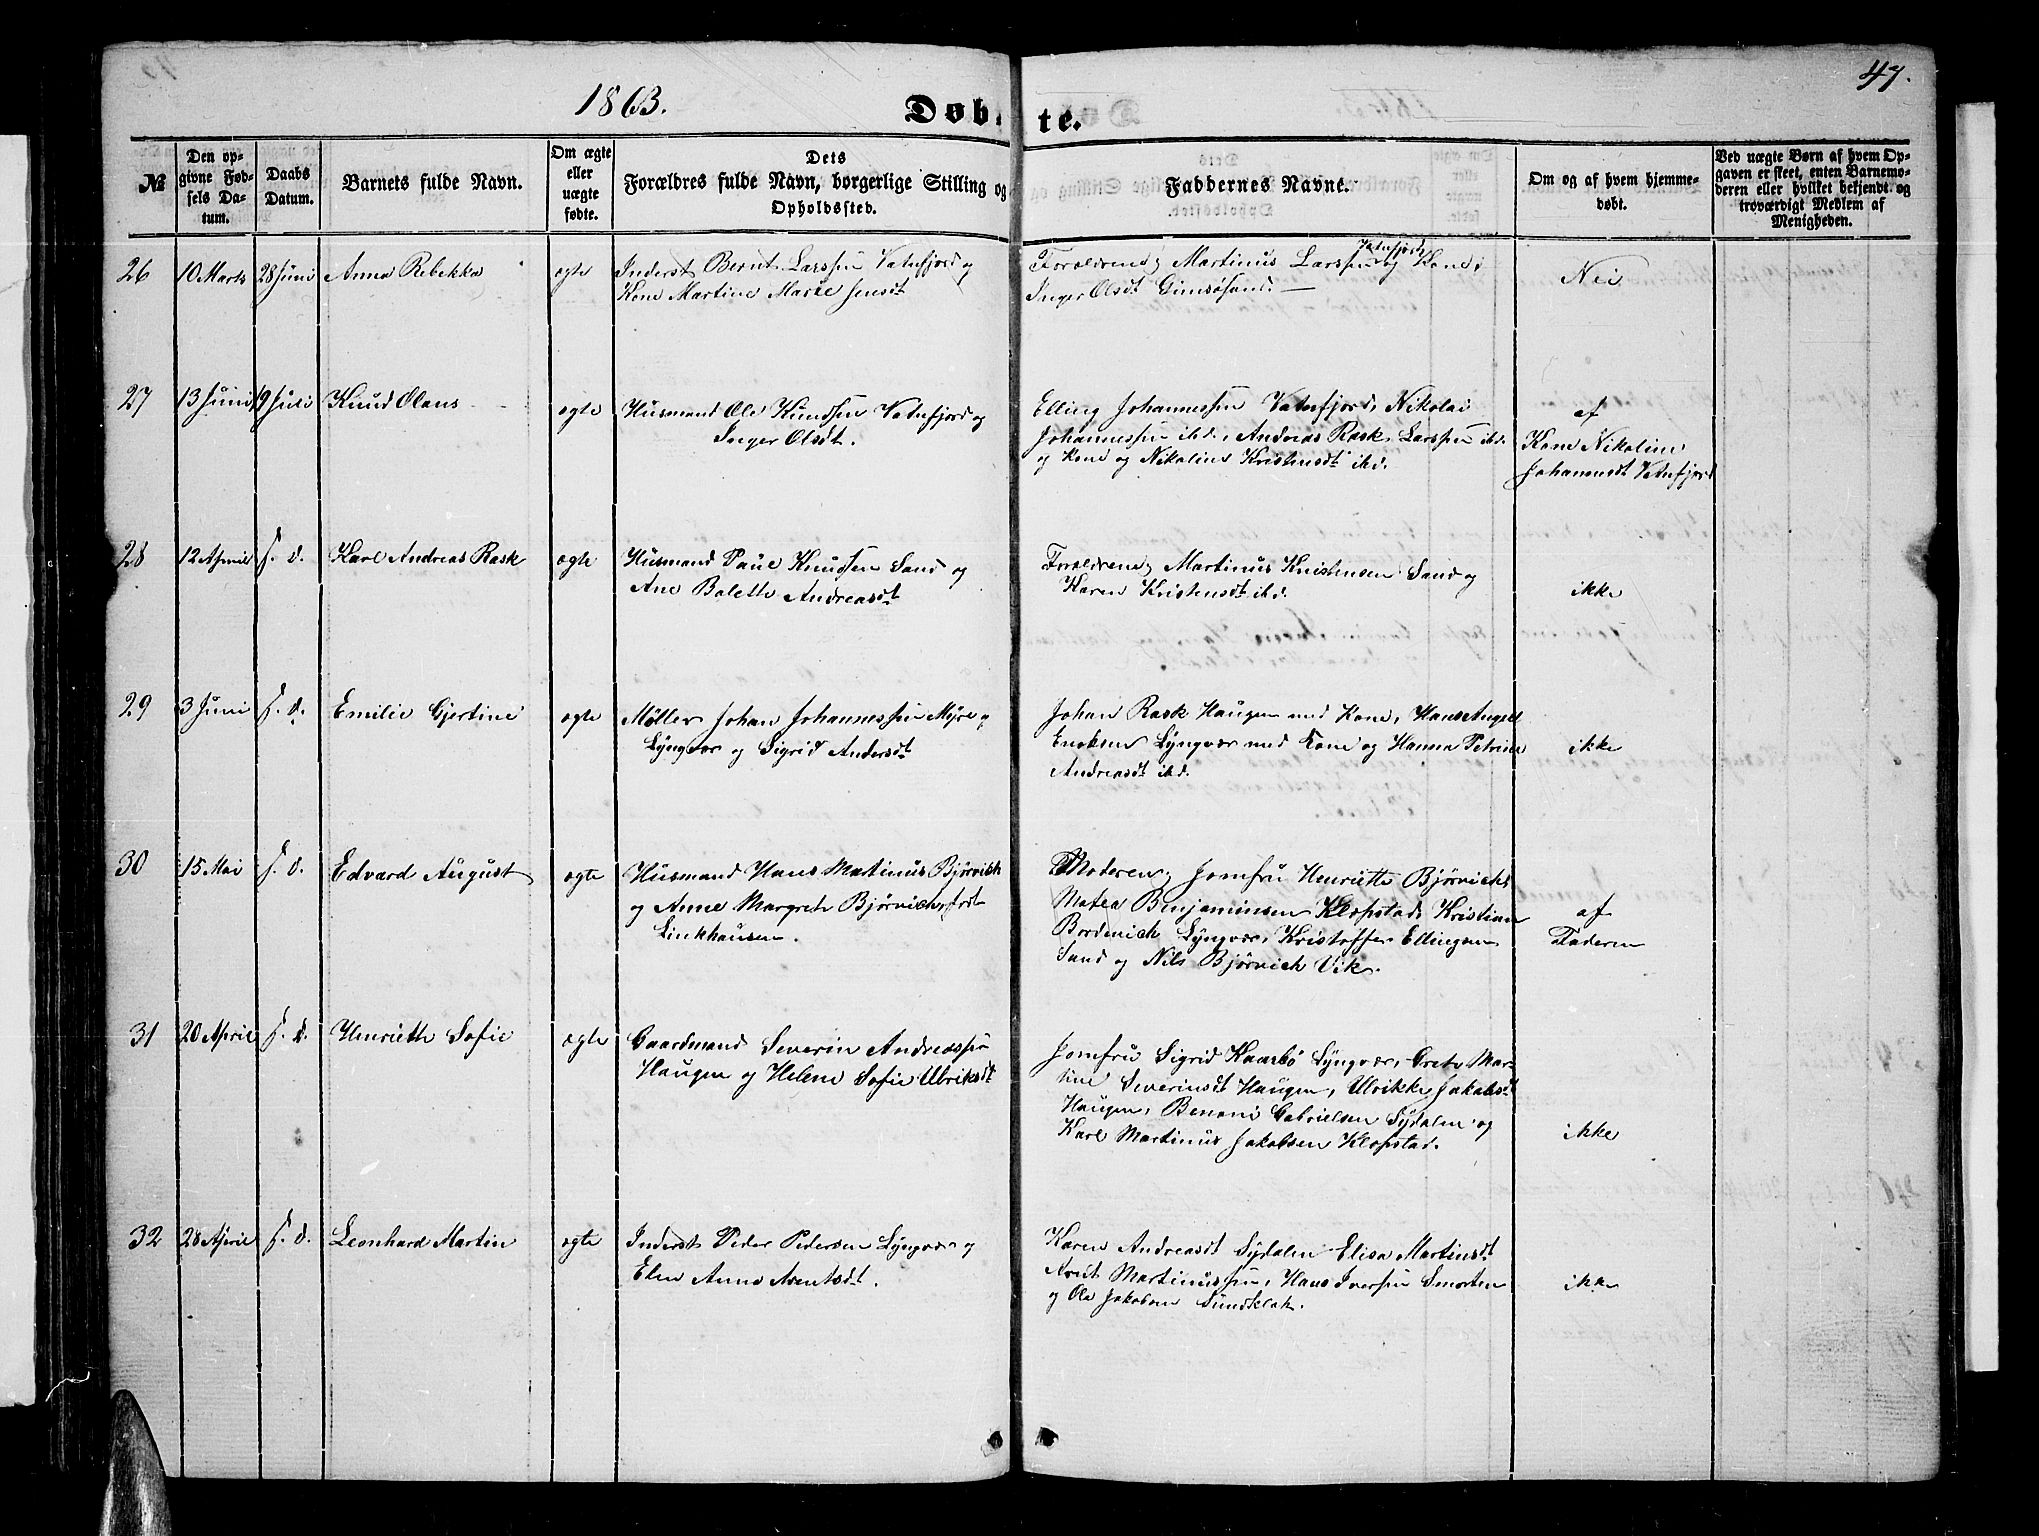 1863.
Døbte.
47.
№
Den opgivne Fødsels Datum.
Daabs Datum.
Barnets fulde Navn.
Om ægte eller uægte fødte.
Dets Forældres fulde Navn, borgerlige Stilling og Opholdssted.
Faddernes Navne.
Om og af hvem hjemmedøbt.
Ved uægte Børn af hvem Opgaven er skeet, enten Barnemoderen eller hvilket bekjendt og troværdigt Medlem af Menigheden.
26 10 Marts 28 Juni Anna Rebekka ægte
Inderst Bernt Larssen Vatnfjord og
Kone Martine Marie Jensdt
Forældrene, Martinus Larssen Vatnfjord og Kone,
Inger Olsdt Gimsøsand.
Nei
27 13 Juni 19 Juli Knud Olaus ægte
Husmand Ole Knudsen Vatnfjord og
Inger Olsdt.
Elling Johannessen Vatnfjord, Nikolai
Johannessen ibd., Andreas Rask Larssen ibd.
og Kone og Nikoline Kristensdt ibd.
af
Kone Nikoline
Johannesdt Vatnfjord
28 12 April s. D. Karl Andreas Rask ægte
Husmand Paul Knudsen Sand og
Ane Bolette Andreasdt
Forældrene, Martinus Kristensen Sand og
Karen Kristensdt ibd.
ikke
29 3 Juni s. d. Emilie Gjertine ægte
Møller Johan Johannessen Myre og
Lyngvær og Sigrid Andersdt
Johan Rask Haugen med Kone, Hans Angel
Enoksen Lyngvær med Kone og Hanna Petrine
Andreasdt ibd.
ikke
30 15 Mai s. D. Edvard August ægte
Husmand Hans Martinus Bjørvich
og Anne Margrete Bjørvich, født
Linkhausen.
Moderen, Jomfru Henriette Bjørvich,
Matea Benjaminsen Klopstad, Kristian
Borderich Lyngvær, Kristoffer Ellingsen
Sand og Nils Bjørvich Vik.
af
Faderen
31 20 April s. D. Henriette Sofie ægte
Gaardmand Severin Andreassen
Haugen og Helene Sofie Ulriksdt
Jomfru Sigrid Kaarbø Lyngvær, Grete Mar-
tine Severinsdt Haugen, Ulrikke Jakobsdt
Haugen, Benoni Gabrielsen Sydalen og
Karl Martinus Jakobsen Klopstad.
ikke
32 28 April s. D. Leonhard Martin ægte
Inderst Peder Pedersen Lyngvær og
Elen Anna Arentsdt.
Karen Andreasdt Sydalen Elisa Martinsdt
Arnt Martinussen, Hans Iversen Smorten
og Ole Jakobsen Sundklak.
ikke